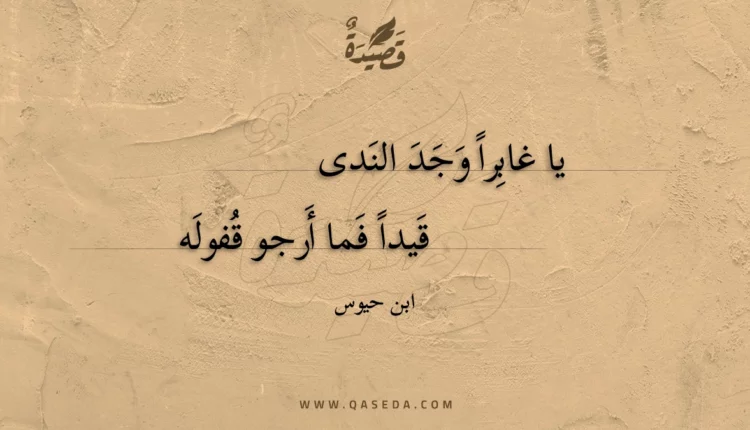 قَصِيْدَةٌ
يا غابِراً وَجَدَ النَدى
قَيداً فَما أَرجو قُفولَه
ابن حيوس
WWW.QASEDA.COM